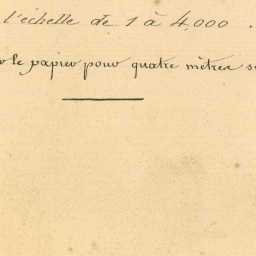 l'échelle de 1 à 4,000 .
le papier pour quatre mètres